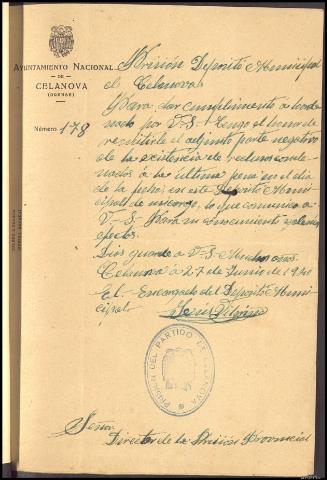 AYUNTAMIENTO NACIONAL
DE
CELANOVA
(ORENSE)
Número 178
Prisión Deposito Municipal
de Celanova
Para dar cumplimiento a lo orde
nado por V-S- tengo el honor de
remitirle el adjunto parte negativo
de la existencia de reclusos conde
nados á la última pena en el dia
de la fecha en este Deposito Muni
cipal de mi cargo, lo que comunico a
V-S- Para su conocimiento y demas
efectos.
Dios guarde a V-S- Muchos años
Celanova á 27 de Junio de 1940
El Encargado del Depósito Muni
cipal
Jesus
PRISION DEL PARTIDO DE CELANOVA
Señor
Director de la Prisión Provincial